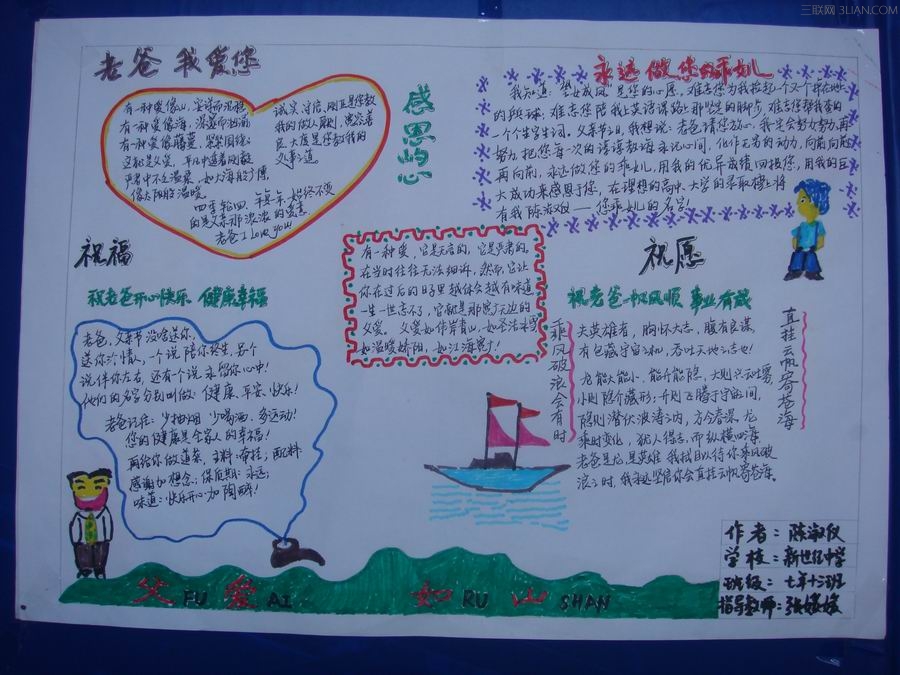 三联网 3LIAN.COM
老爸 我爱您
有一种爱像山,坚译而沉稳
有一种爱像海,深邃而
有一种爱像藤蔓,紧紧围绕;
这就是父爱,平凡中透着刚毅
严肃中不乏温柔,如大海般
像太阳般温暖
诚实、守信、刚正是您教
我的做人原则!宽容善
良、大度是您教
四季轮回,年复一年,始终不变
的是父亲那浓浓的爱意
老爸 I Love you
感恩的心
永远做您的乖女儿
我知道:望女成凤,是您的心愿,难忘您为我拾起一个又一个掉在地上
的球;难忘您陪我上英语课路上那坚实的脚步;难忘您帮我写的
一个个生字生词。父亲节之日,我想说:老爸请您放心,我定会努力努力再
努力,把您每一次的谆谆教诲永记心间,化作无穷的动力,向前向前
再向前,永远做您的乖女儿,用我的优异成绩回报您,用我的巨
大成功来感恩于您,在理想的高中、大学的录取榜上将
有我陈淑仪——您乖女儿的名字!
有一种爱,它是无言的,它是严肃的,
在当时往往无法细诉,然而,它让
你在过后的日子里越体会越有味道
一生一世忘不了,它就是那宽广无边的
父爱。父爱如伟岸青山,如圣洁冰雪
如温暖娇阳,如江海宽广!
祝福
祝老爸开心快乐 健康幸福
老爸,父亲节没啥送你,
送你份情,一个说陪你终生,另个
说伴你左右,还有个说永留你心中!
他们的名字分别叫做:健康、平安、快乐!
老爸记住:少抽烟 少喝酒、多运动!
您的健康是全家人的幸福!
再给你做道菜,主料:牵挂;配料:
感谢加想念;保质期:永远;
味道:快乐开心加陶醉!
祝愿
祝老爸一帆风顺 事业有成
乘风破浪会有时
直挂云帆寄沧海
夫英雄者,胸怀大志,腹有良谋,
有包藏宇宙之机,吞吐天地之志也!
龙能大能小,能升能隐,大则兴云吐雾,
小则隐介藏形;升则飞腾于宇宙间,
隐则潜伏波涛之内,方今春深,龙
乘时变化,犹人得志,而纵横四海
老爸是龙,是英雄,我拭目以待你乘风破
浪之时,我永远坚信你会直挂云帆寄沧海。
父 FU 爱 AI 如 RU 山 SHAN
作者:陈淑仪
学校:新世纪中学
班级:七年十二班
指导教师:张媛媛